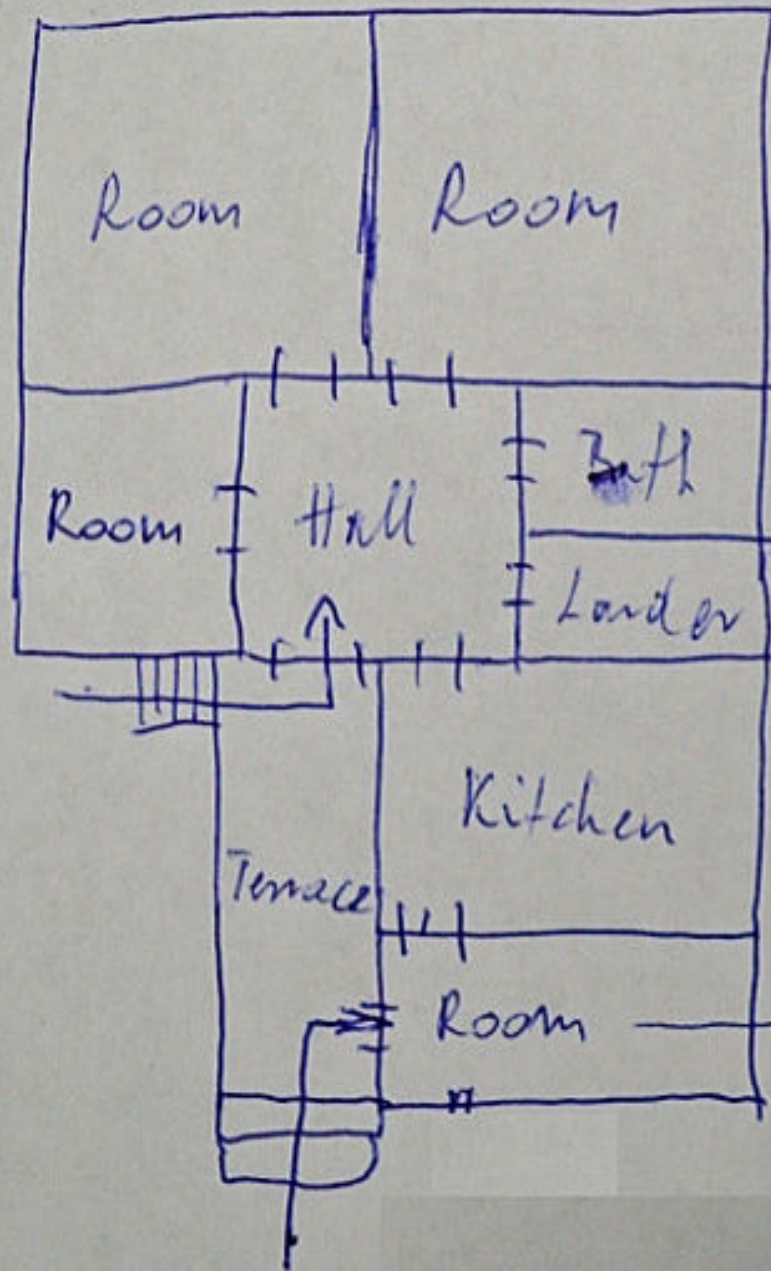 Room
Room
Room
Hall
Bath
Larder
Kitchen
Terrace
Room